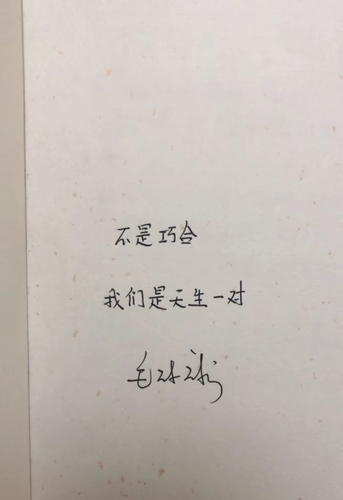 不是巧合
我们是天生一对
毛